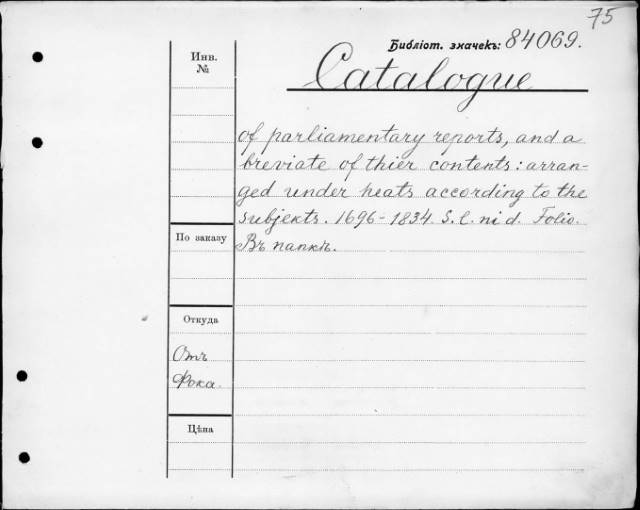 75
Библіот. значекъ: 84069.
Инв.
№
Catalogue
of parliamentary reports, and a
breviate of thier contents: arran-
ged under heats according to the
subjekts. 1696-1834. S. l. ni d. Folio.
По заказу
Въ папкѣ.
Откуда
Отъ
Фока.
Цѣна